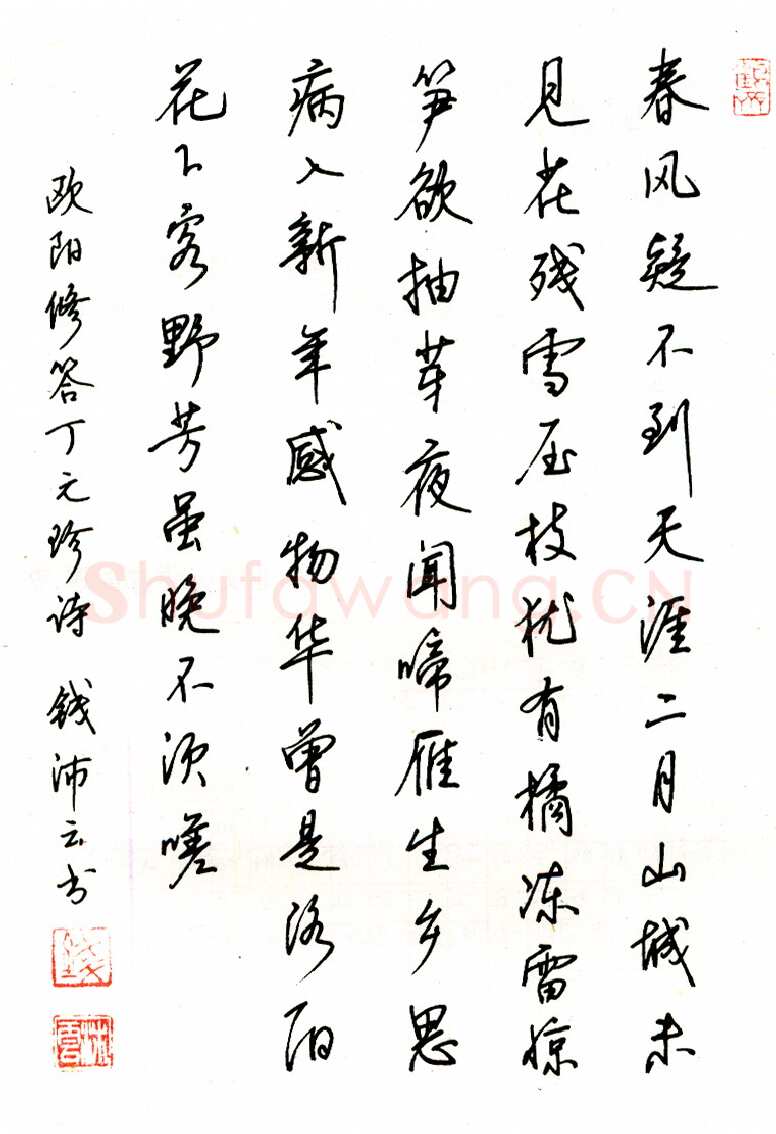 春风疑不到天涯二月山城未
见花残雪压枝犹有橘冻雷惊
笋欲抽芽夜闻啼雁生乡思
病入新年感物华曾是洛阳
花下客野芳虽晚不须嗟
欧阳修答丁元珍诗 钱沛云书
Shufawang.CN